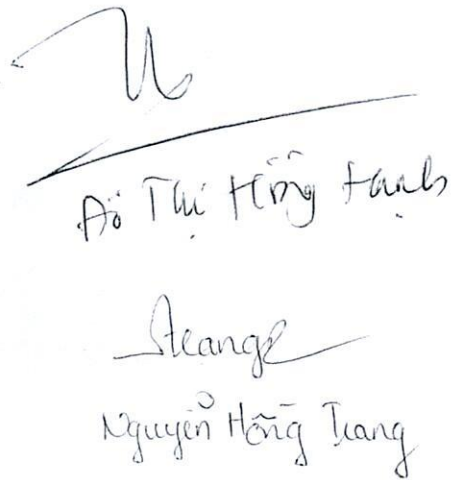 Đỗ Thị Hồng Hạnh
Trang
Nguyễn Hồng Trang